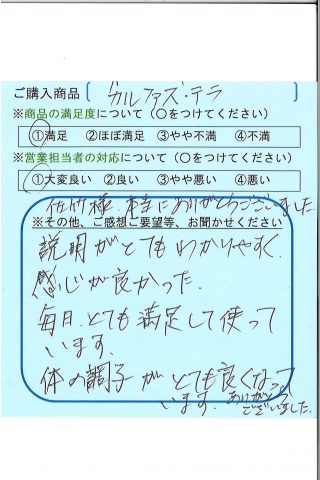 ご購入商品
カルファズ・テラ
※商品の満足度について（○をつけてください）
①満足 ②ほぼ満足 ③やや不満 ④不満
※営業担当者の対応について（○をつけてください）
①大変良い ②良い ③やや悪い ④悪い
佐竹様 本当にありがとうございました。
※その他、ご感想ご要望等、お聞かせください
説明がとてもわかりやすく、
感心が良かった。
毎日、とても満足して使って
います。
体の調子がとても良くなって
います。ありがとう
ございました。